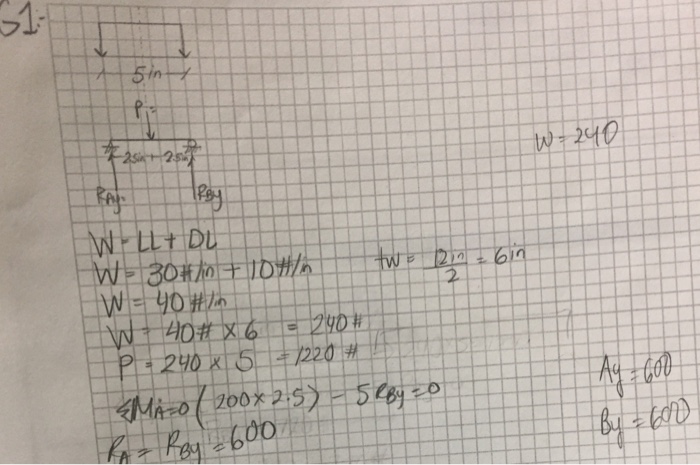 G1:
5in
P1=
W=240
2.5in + 2.5in
RAy RBy
W=LL+DL
W= 30#/in + 10#/in tw= 12in/2 = 6in
W= 40#/in
W= 40# x 6 = 240#
P = 240 x 5 = 1220 #
ΣMA=0 ( 200 x 2.5) - 5RBy=0
Ay=600
RA = RBy = 600
By=600